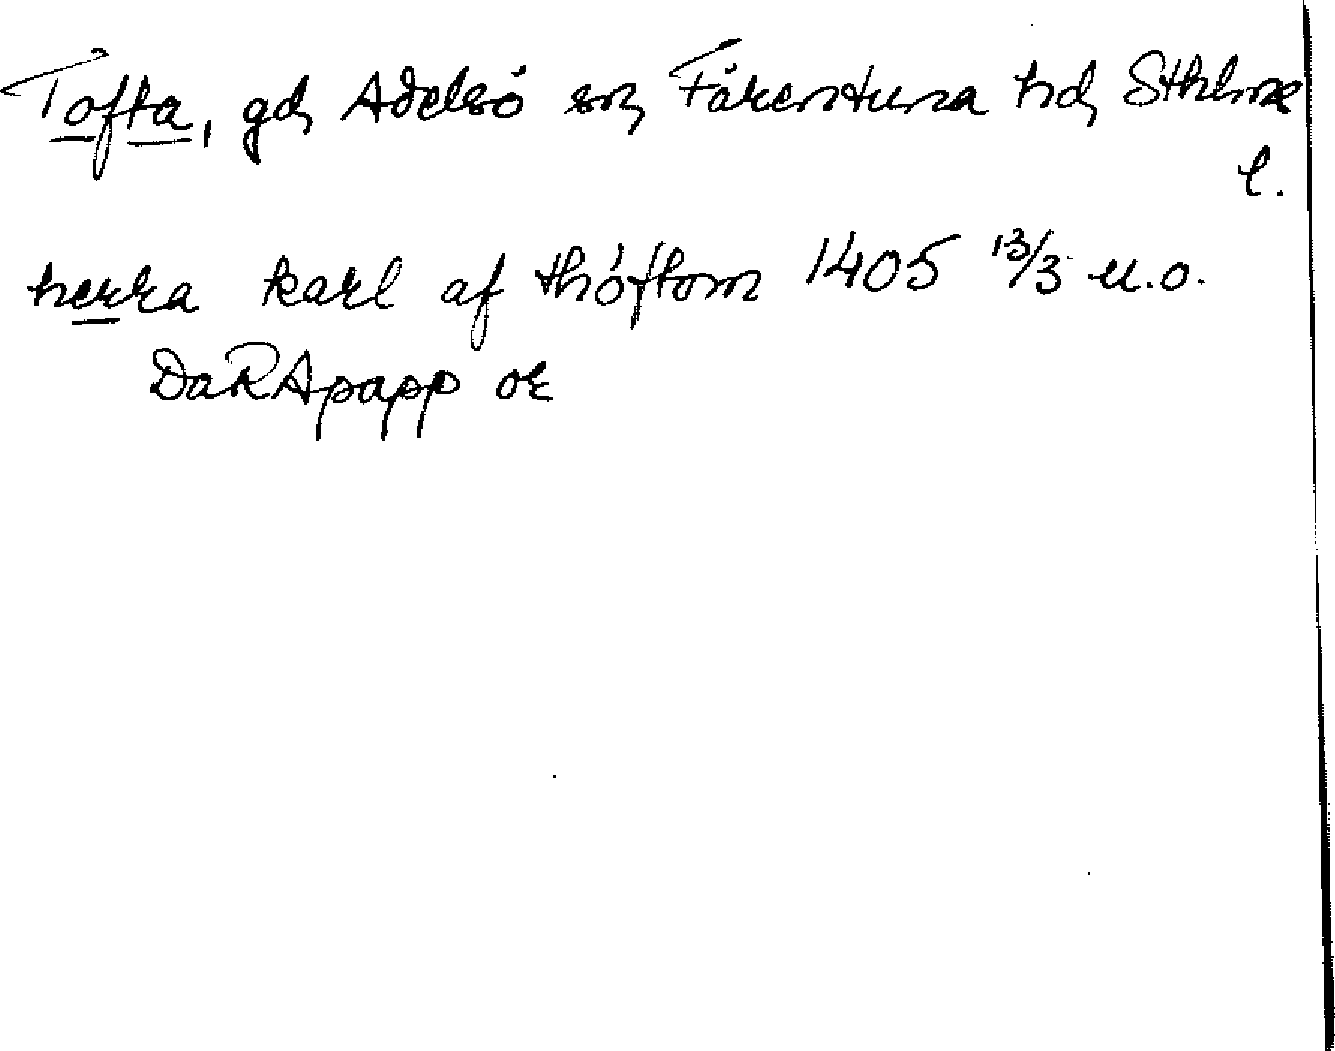 Tofta, gd, Adelsö sn, Färentuna hd, Sthlms
l.
herra karl af thöftom 1405 13/3 u.o.
DaRApapp or